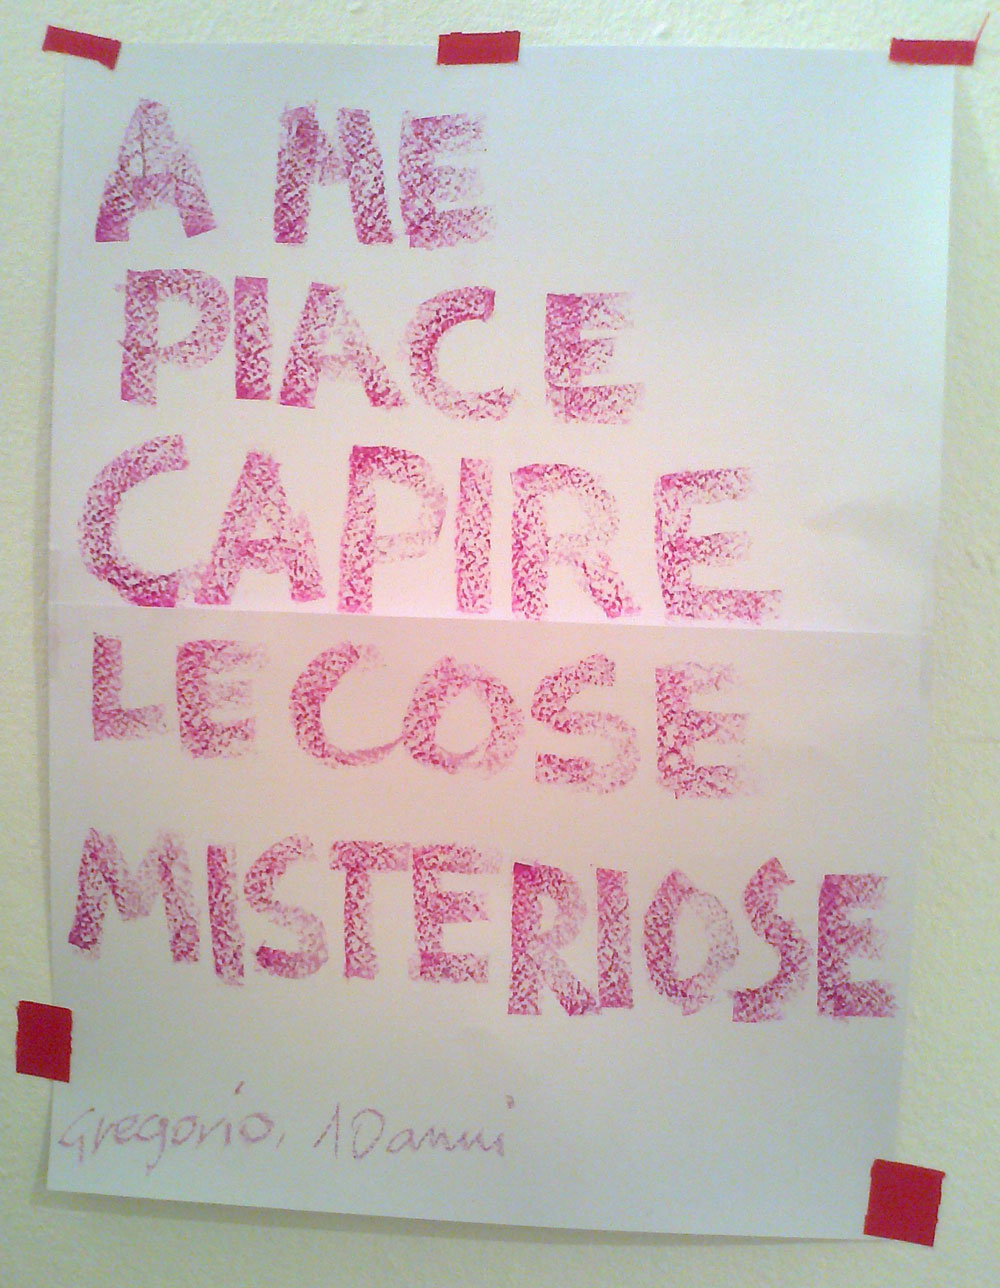 A ME
PIACE
CAPIRE
LE COSE
MISTERIOSE
Gregorio, 10 anni